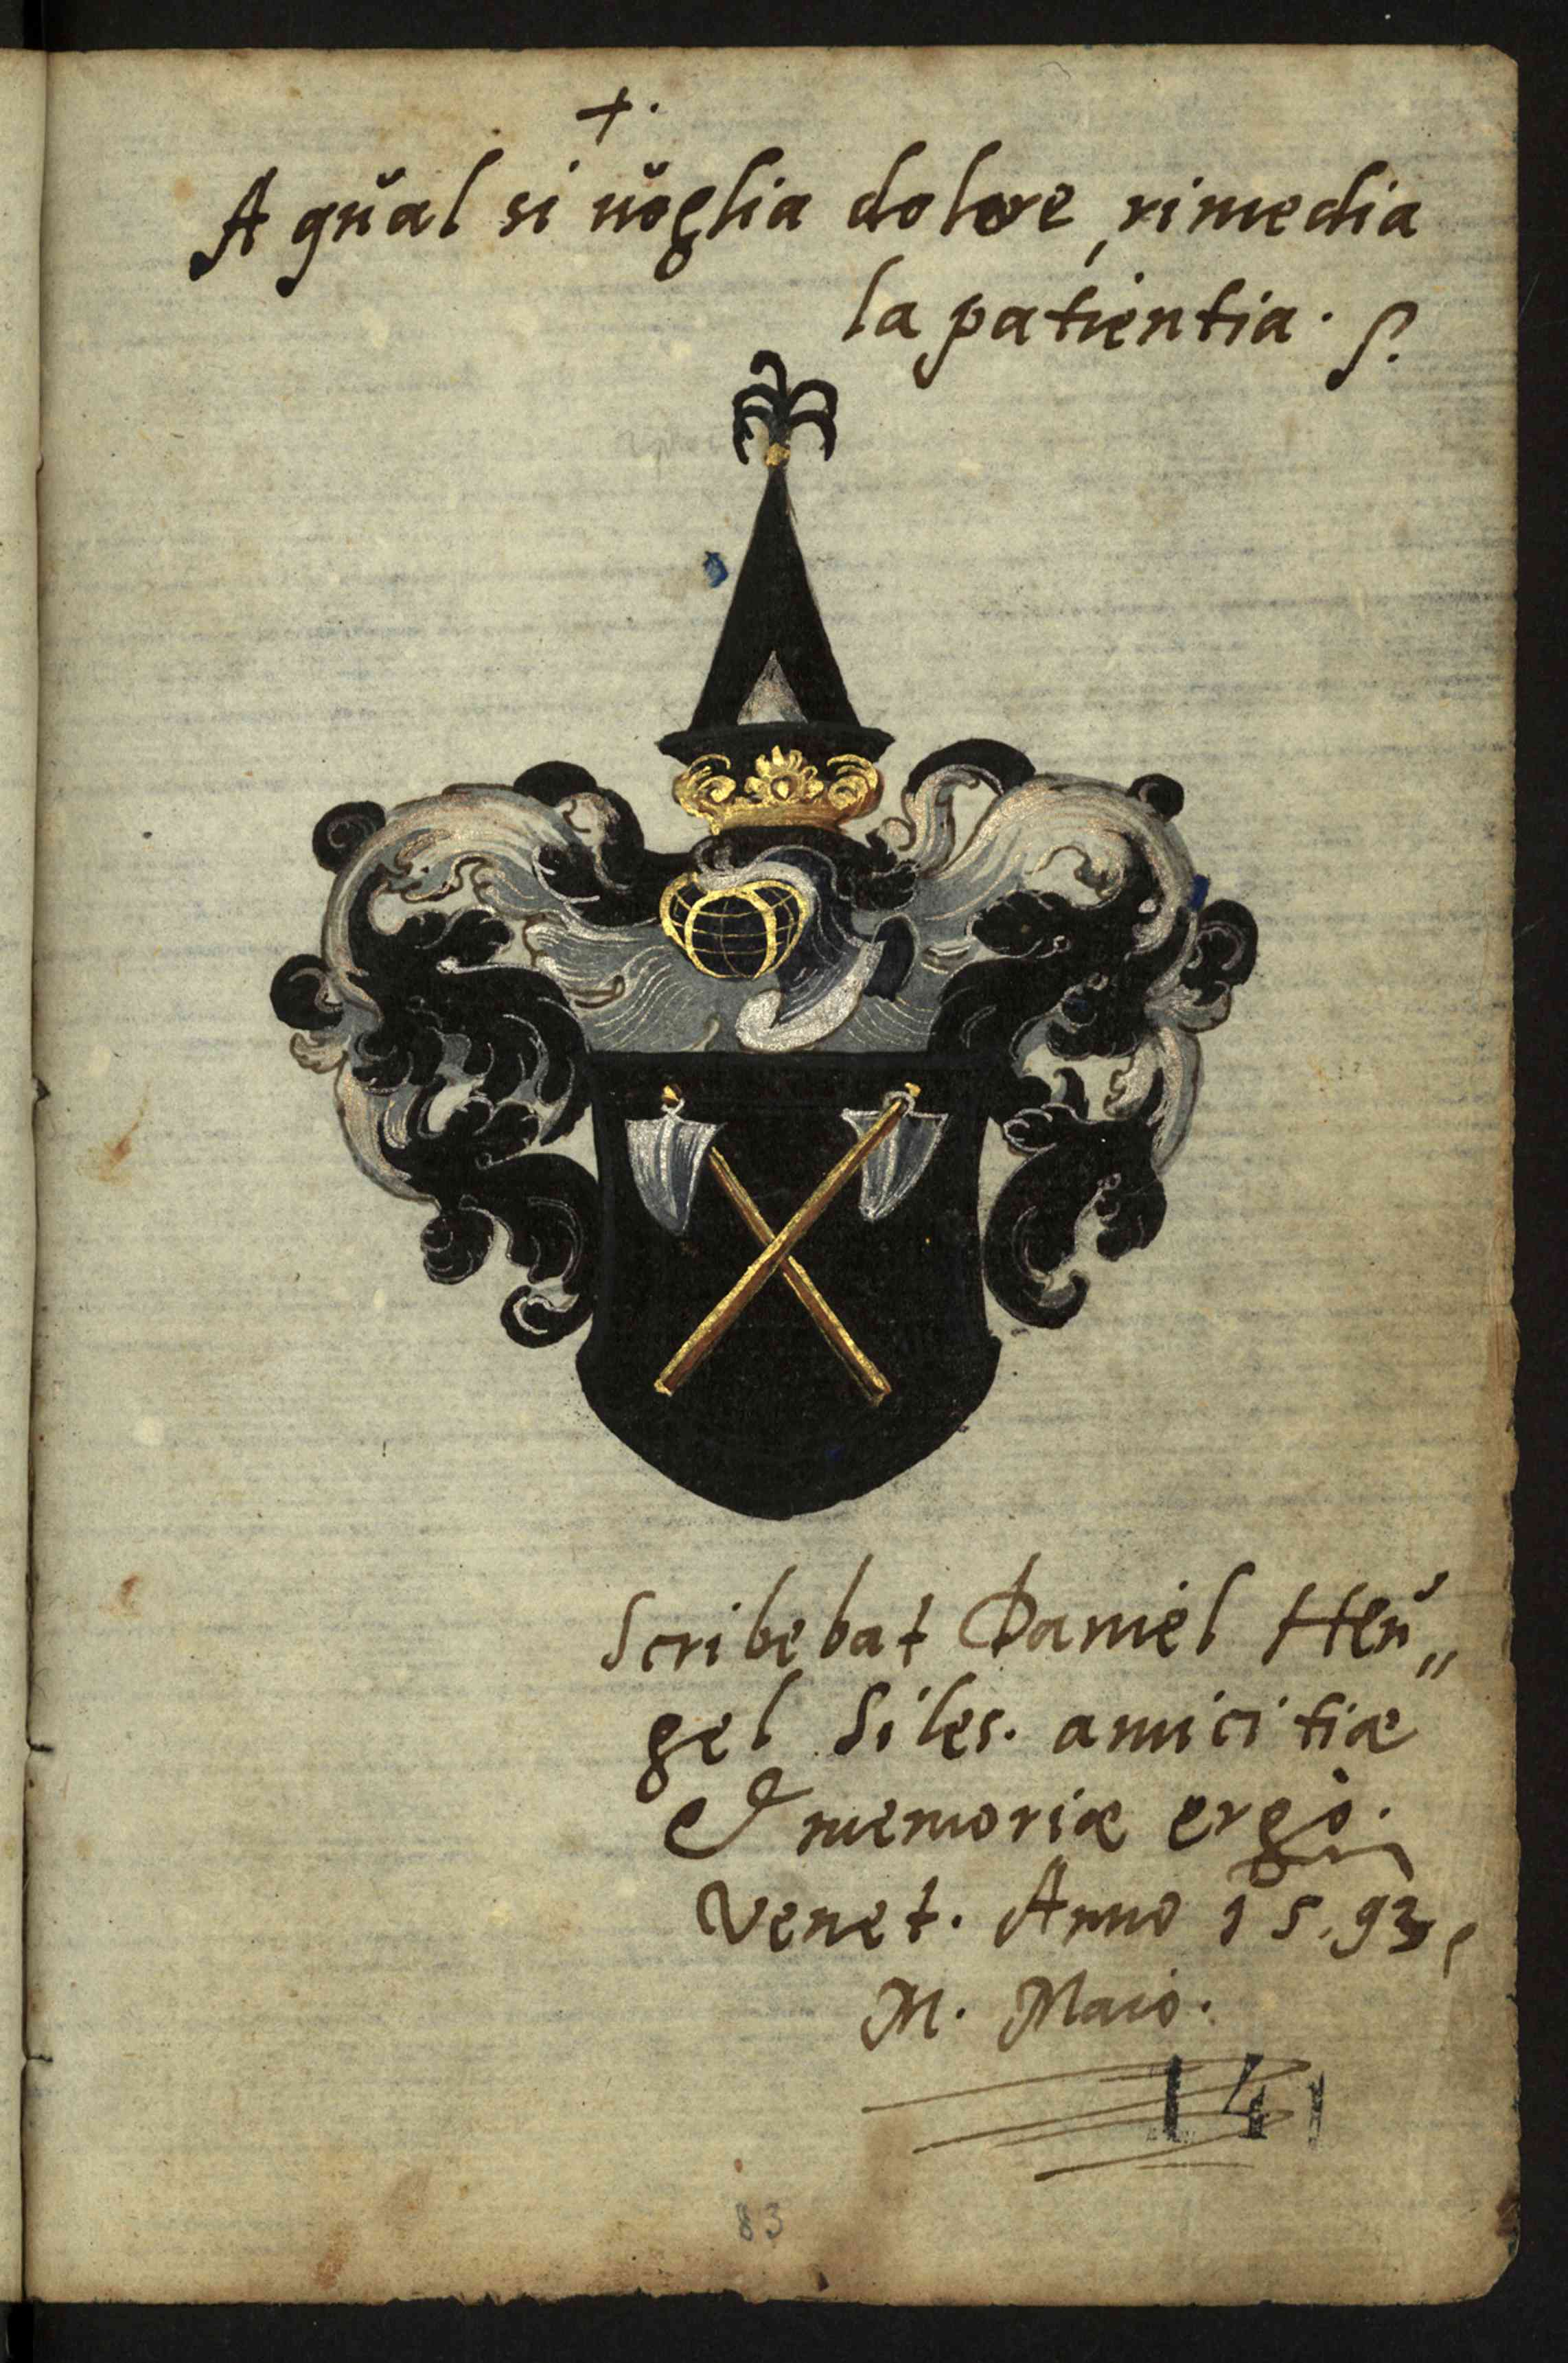 +.
A qŭal si ŭoglia dolore, rimedia
la patientia. S.
Scribebat Daniel Heŭ„
gel Siles. amicitiæ
& memoriæ ergò.
Venet. Anno 15.93.
M. Maio.
141
83